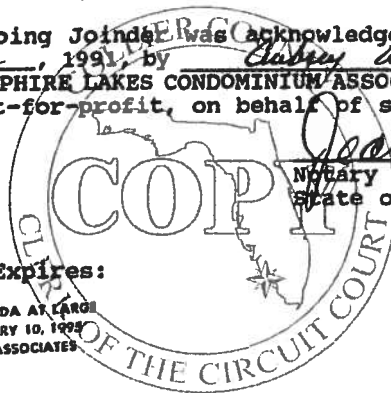 oing Joinder was acknowledge
, 1991, by Aubrey
PHIRE LAKES CONDOMINIUM ASSOC
t-for-profit, on behalf of s
Notary
State o
Expires:
DA AT LARGE
RY 10, 1995
ASSOCIATES
COPY
COLLIER COUNTY
CLERK OF THE CIRCUIT COURT